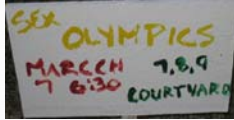 SEX
OLYMPICS
MARCCH 7,8,9
7 6:30 COURTYARD